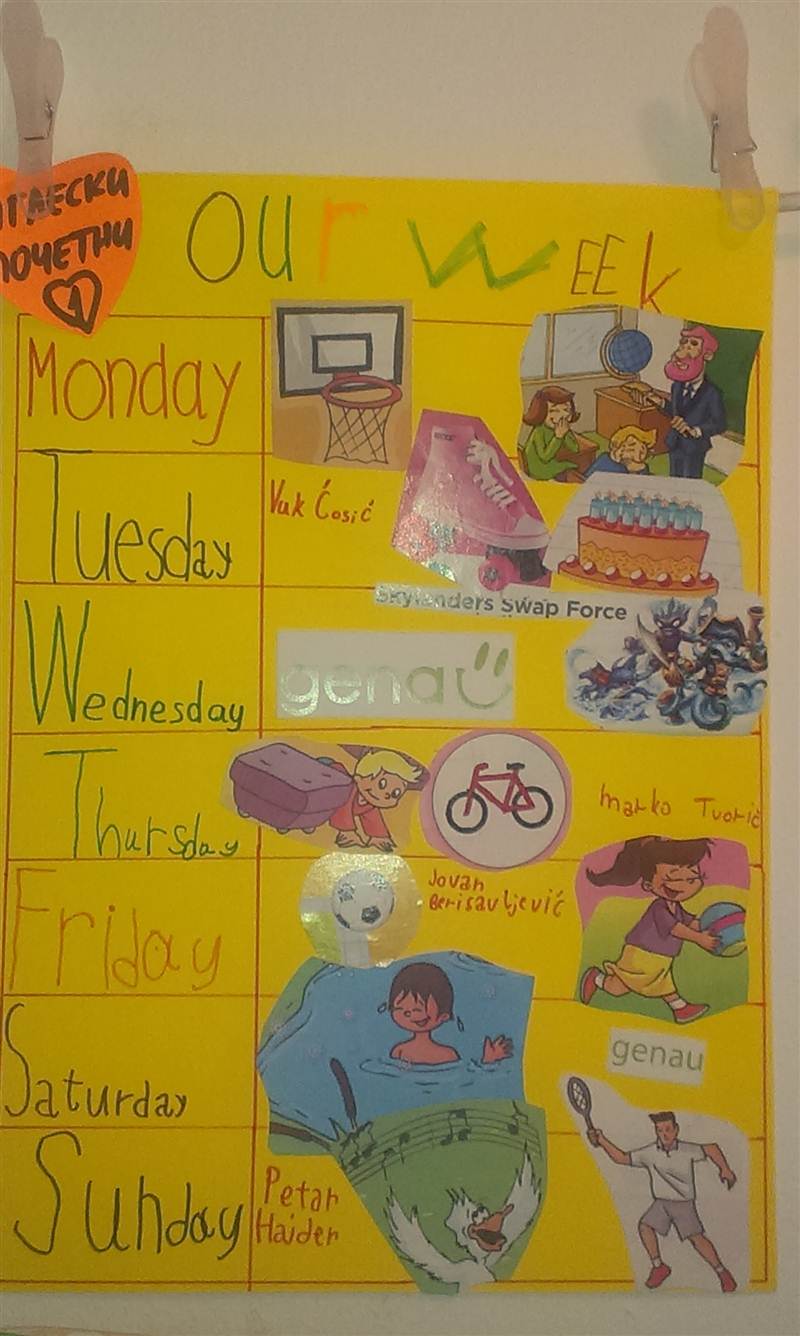 НГЛЕСКИ
ПОЧЕТНИ
1
our wEEk
Monday
Tuesday
Vuk Ćosić
Skylanders Swap Force
Wednesday
genau
Thursday
marko Tvorić
Friday
Jovan
Berisavljević
Saturday
genau
Sunday
Petar
Hajder